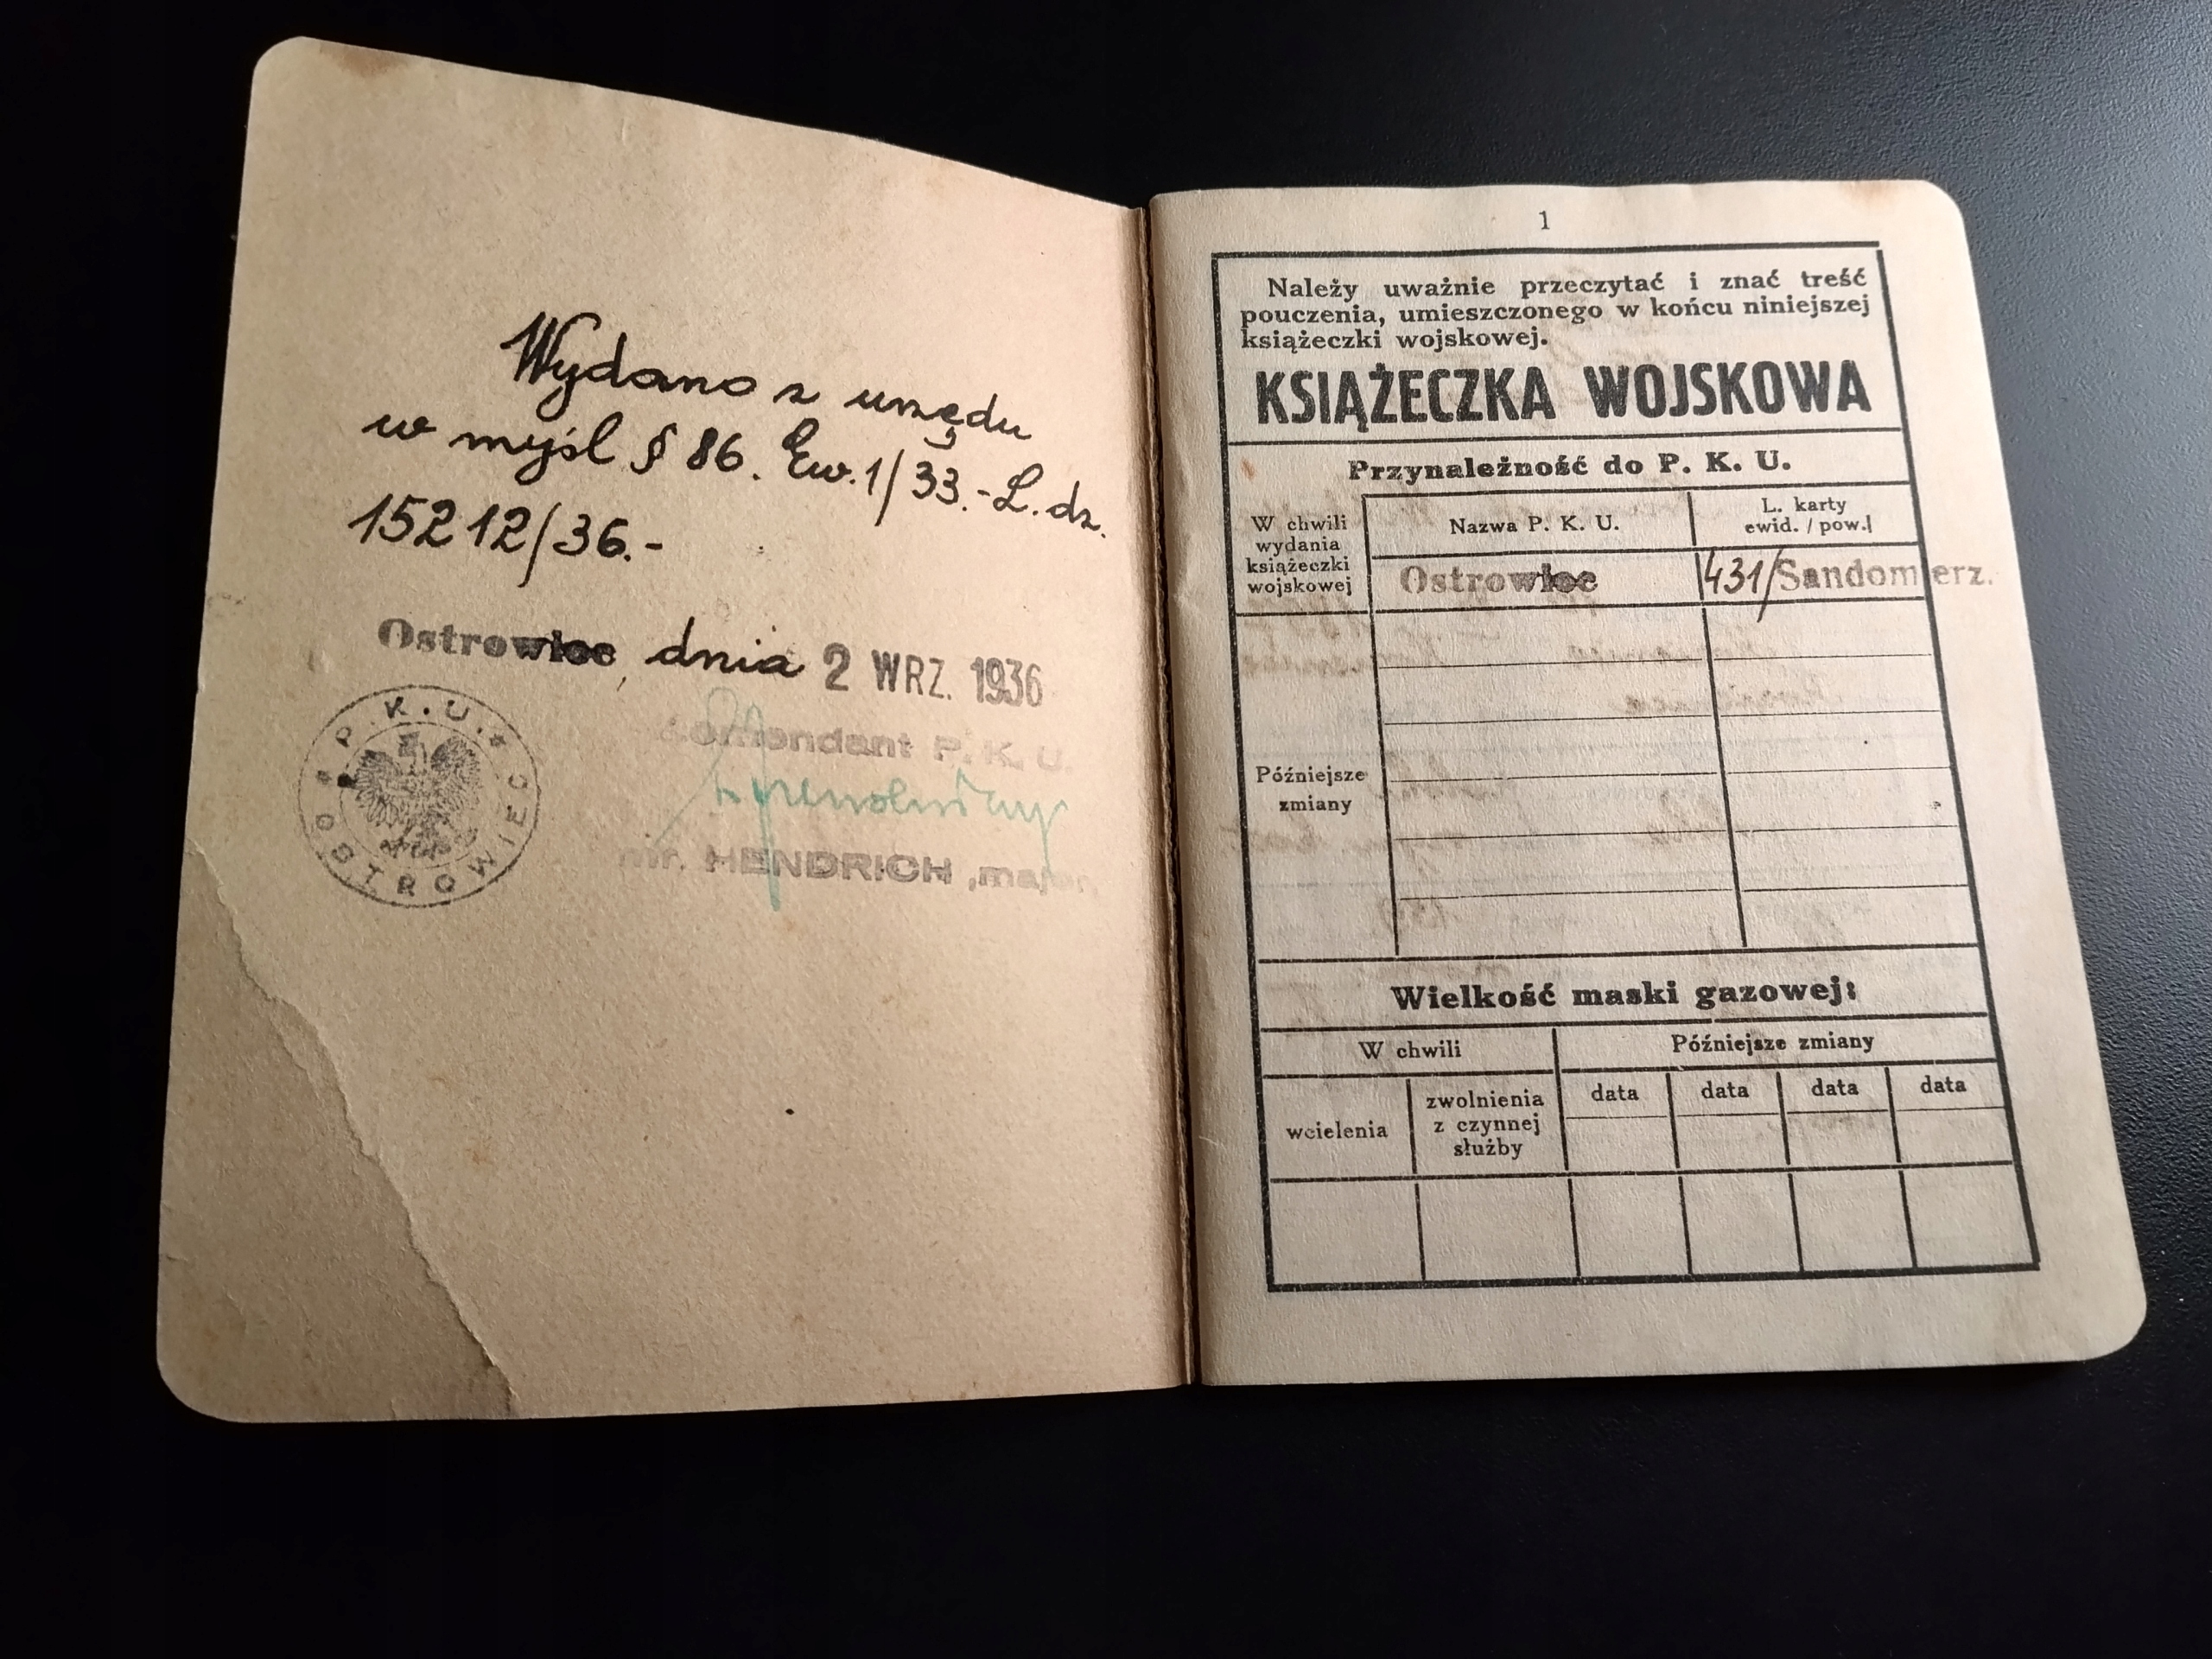 Wydano z urzędu
w myśl § 86. Ew. 1/33.- L. dz.
15212/36.-
Ostrowiec, dnia 2 WRZ. 1936
P. K. U. OSTROWIEC
Komendant P. K. U.
HENDRICH, major.
1
Należy uważnie przeczytać i znać treść
pouczenia, umieszczonego w końcu niniejszej
książeczki wojskowej.
KSIĄŻECZKA WOJSKOWA
Przynależność do P. K. U.
W chwili
wydania
książeczki
wojskowej
Nazwa P. K. U.
L. karty
ewid. / pow.
Ostrowiec
431/Sandomierz.
Późniejsze
zmiany
Wielkość maski gazowej:
W chwili
Późniejsze zmiany
wcielenia
zwolnienia
z czynnej
służby
data
data
data
data